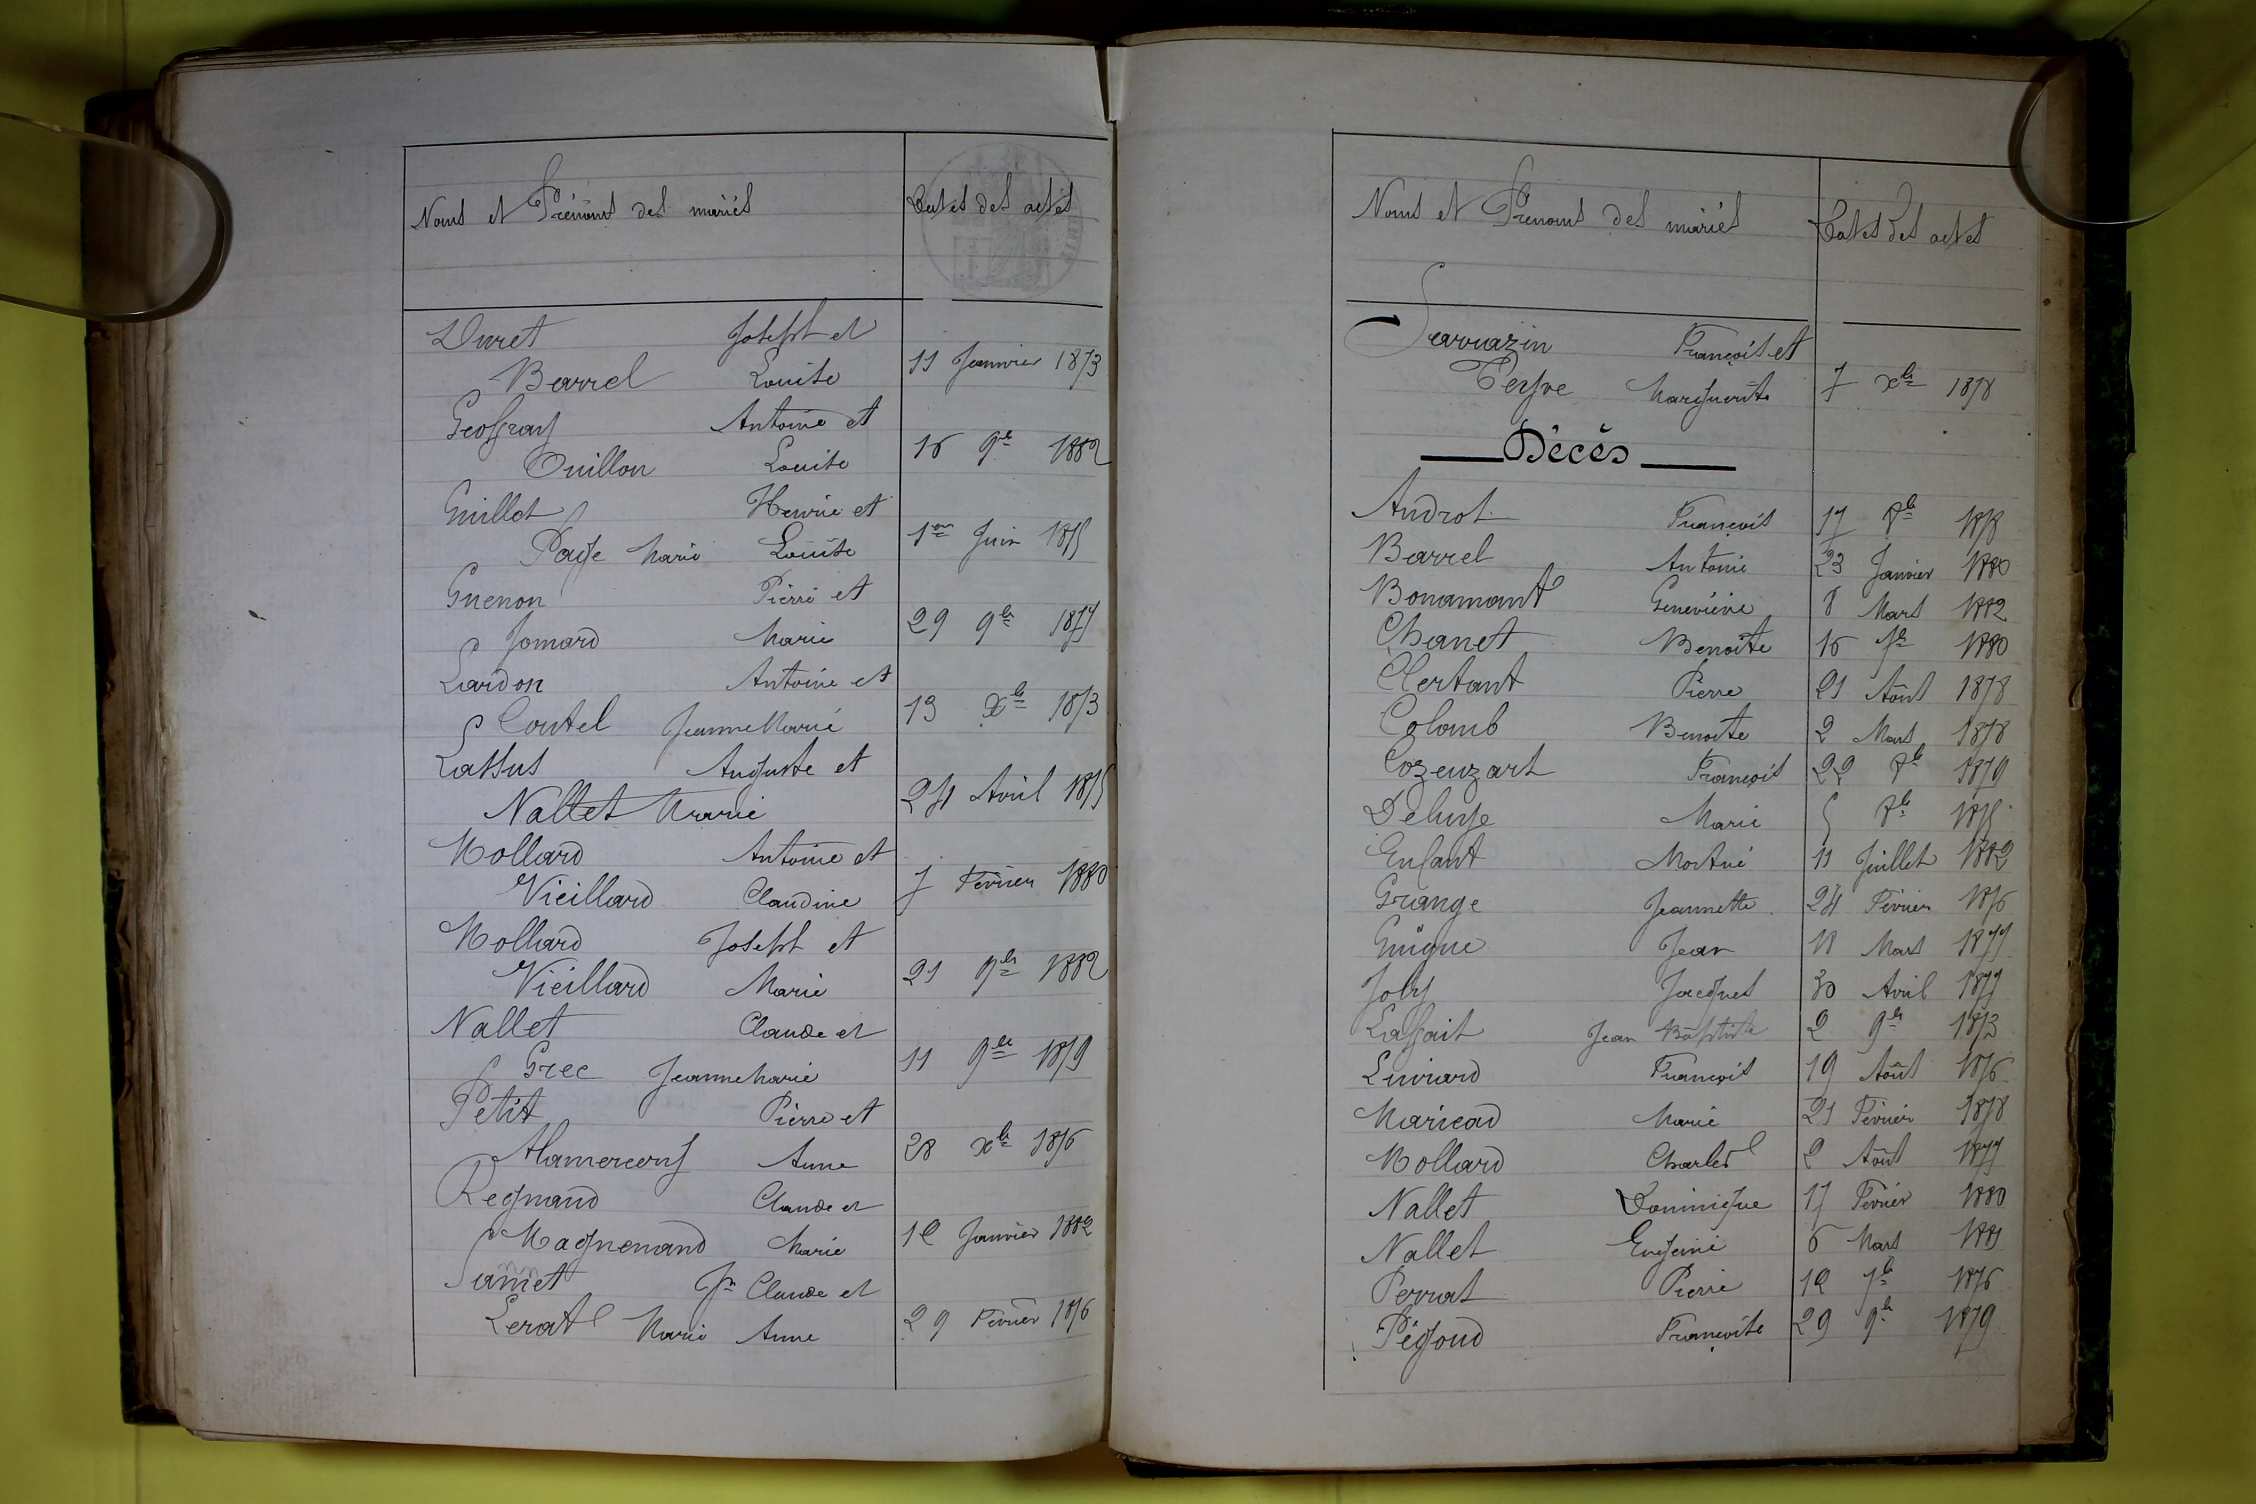 Noms et Prénoms des mariés
Dates des actes
Duret Joseph et
Barrel Louise 11 Janvier 1873
Geoffray Antoine et
Ouillon Louise 16 9bre 1882
Guillot Henrie et
Page Marie Louise 1er Juin 1875
Guenon Pierre et
Jomard Marie 29 9bre 1877
Lardon Antoine et
Coutel Jeanne Marie 13 Xbre 1873
Lassus Auguste et
Nallet Marie 24 Avril 1875
Mollard Antoine et
Vieillard Claudine 7 Février 1880
Mollard Joseph et
Vieillard Marie 21 9bre 1882
Nallet Claude et
Grec Jeanne Marie 11 9bre 1879
Petit Pierre et
Alamercery Anne 28 Xbre 1876
Reynaud Claude et
Magnenand Marie 12 Janvier 1882
Samet Jn Claude et
Lerat Marie Anne 29 Février 1876
Noms et Prenoms des mariés
Dates des actes
Sarrazin François et
Teyre Marguerite 7 Xbre 1878
Décès
Androt François 17 8bre 1878
Barrel Antoine 23 Janvier 1880
Bonamant Geneviève 8 Mars 1882
Chanet Benoîte 16 7bre 1880
Clertant Pierre 21 Août 1878
Colomb Benoite 2 Mars 1878
Cozenzart François 22 8bre 1879
Deluye Marie 5 8bre 1875
Enfant Mort né 11 Juillet 1882
Grange Jeannette 24 Février 1876
Guigue Jean 18 Mars 1877
Joly Jacques 30 Avril 1877
Laffait Jean Baptiste 2 9bre 1873
Liuiard François 19 Août 1876
Maricad Marie 21 Février 1878
Mollard Charles 2 Août 1877
Nallet Dominique 17 Février 1880
Nallet Eugénie 6 Mars 1881
Perrat Pierre 12 7bre 1876
Pégoud Françoise 29 9bre 1879